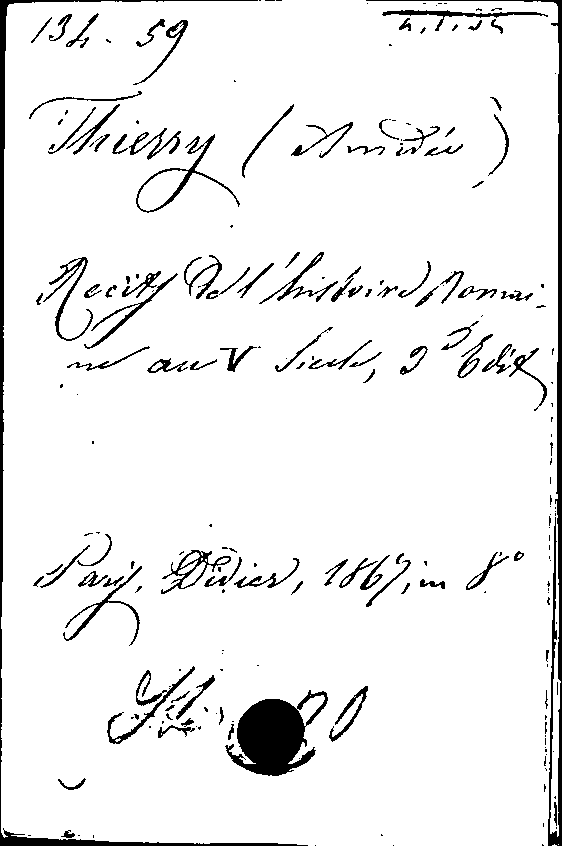 134. 59
Thierry (Amédée)
Recits de l'histoire Romai-
ne au V Siecle, 2d Edit
Paris, Didier, 1867, in 8°